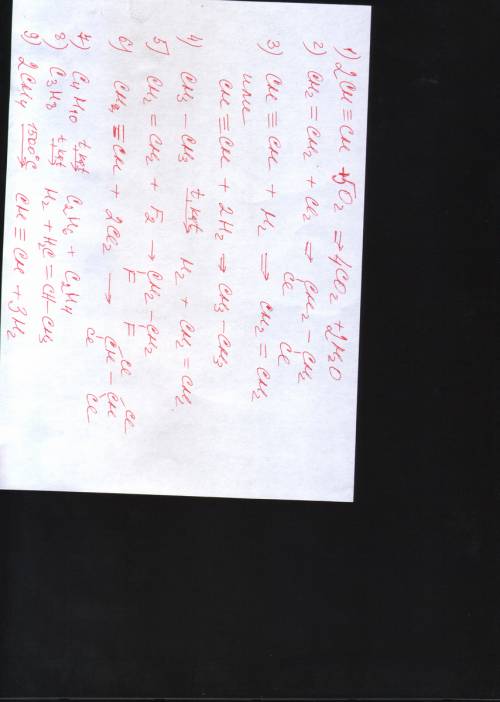 1) 2CH≡CH + 5O2 ⇒ 4CO2 + 2H2O
2) CH2=CH2 + Cl2 ⇒ CH2 – CH2
Cl Cl
3) CH≡CH + H2 ⇒ CH2=CH2
или
CH≡CH + 2H2 ⇒ CH3–CH3
4) CH3 – CH3 t, kat→ H2 + CH2=CH2
5) CH2=CH2 + F2 → CH2–CH2
F F
6) CH≡CH + 2Cl2 → CH – CH
Cl Cl
Cl Cl
7) C4H10 t, kat→ C2H6 + C2H4
8) C3H8 t, kat→ H2 + H2C=CH–CH3
9) 2CH4 1500°C→ CH≡CH + 3H2